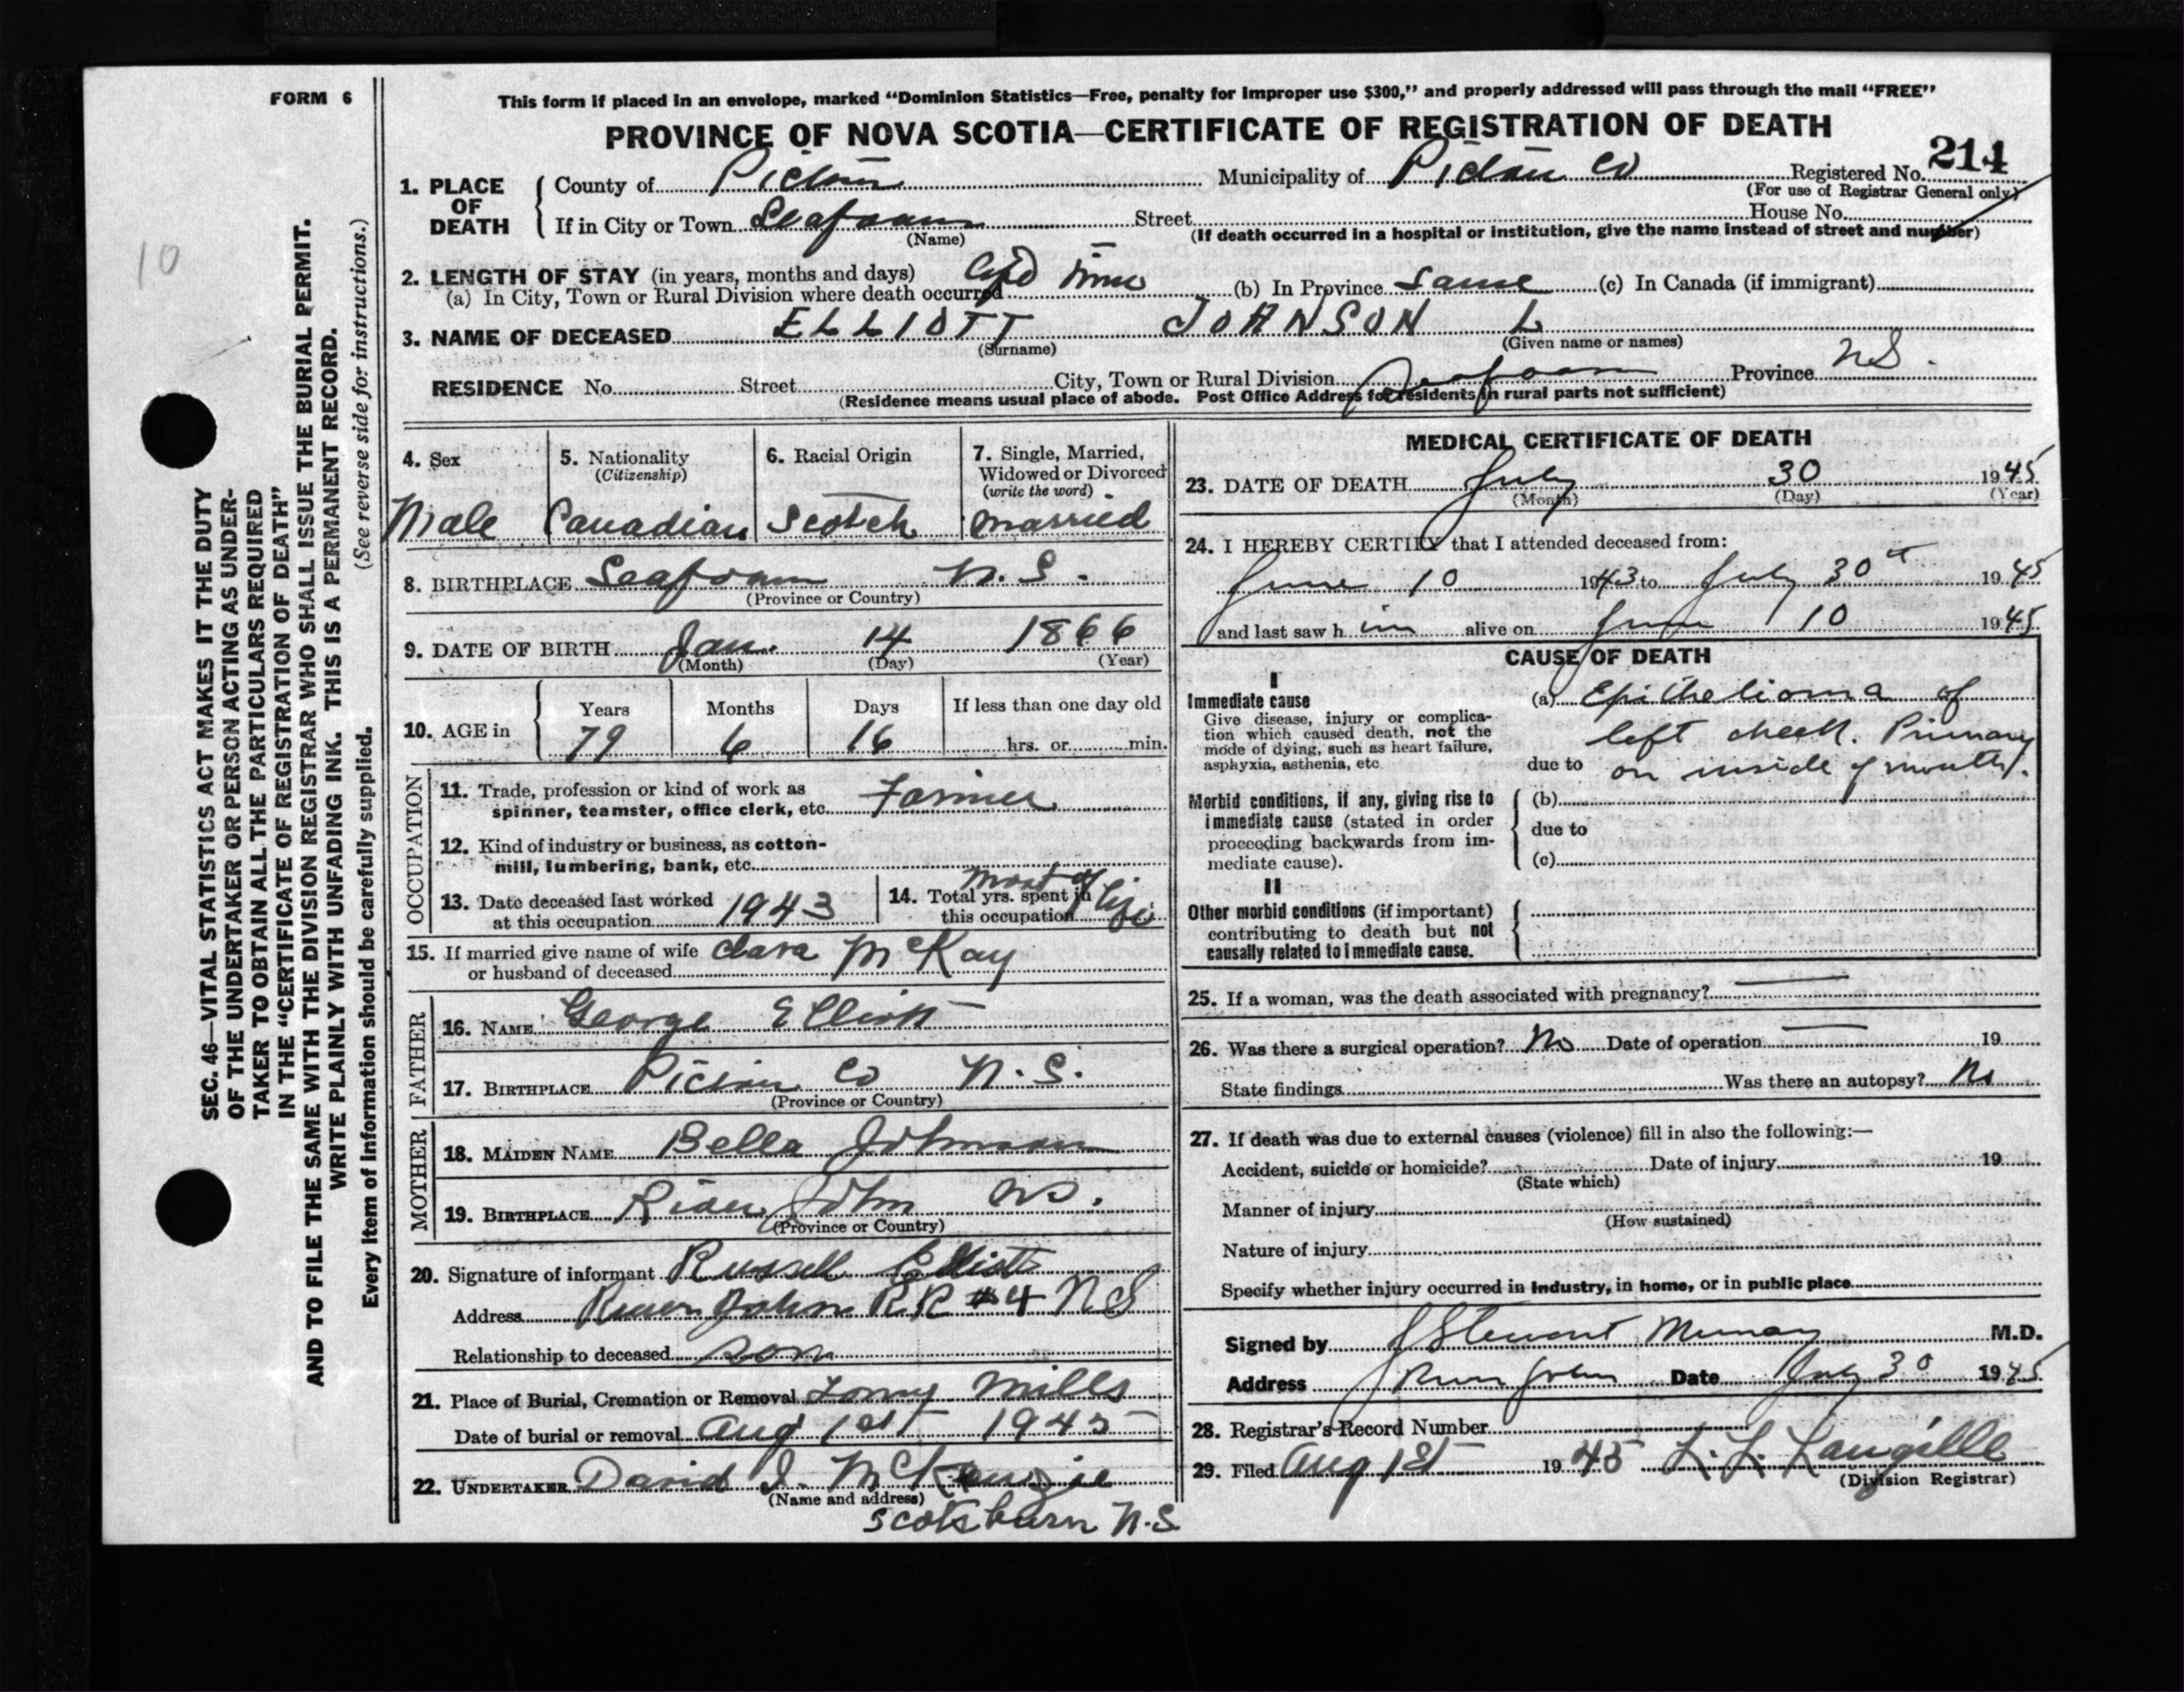 FORM 6
This form if placed in an envelope, marked “Dominion Statistics—Free, penalty for improper use $300,” and properly addressed will pass through the mail “FREE”
PROVINCE OF NOVA SCOTIA—CERTIFICATE OF REGISTRATION OF DEATH
214
1. PLACE OF DEATH
County of Pictou Municipality of Pictou Co Registered No.
(For use of Registrar General only)
If in City or Town Seafoam Street House No.
(Name) (If death occurred in a hospital or institution, give the name instead of street and number)
2. LENGTH OF STAY (in years, months and days)
(a) In City, Town or Rural Division where death occurred Life time (b) In Province Same (c) In Canada (if immigrant)
3. NAME OF DECEASED ELLIOTT JOHNSON L
(Surname) (Given name or names)
RESIDENCE No. Street City, Town or Rural Division Seafoam Province NS.
(Residence means usual place of abode. Post Office Address for residents in rural parts not sufficient)
4. Sex
Male
5. Nationality
(Citizenship)
Canadian
6. Racial Origin
Scotch
7. Single, Married,
Widowed or Divorced
(write the word)
married
8. BIRTHPLACE Seafoam N.S.
(Province or Country)
9. DATE OF BIRTH Jan. 14 1866
(Month) (Day) (Year)
10. AGE in
Years Months Days If less than one day old
79 6 16 hrs. or min.
OCCUPATION
11. Trade, profession or kind of work as
spinner, teamster, office clerk, etc. Farmer
12. Kind of industry or business, as cotton-
mill, lumbering, bank, etc.
13. Date deceased last worked
at this occupation 1943
14. Total yrs. spent in
this occupation most of life
15. If married give name of wife
or husband of deceased Clara McKay
FATHER
16. NAME George Elliott
17. BIRTHPLACE Pictou Co N.S.
(Province or Country)
MOTHER
18. MAIDEN NAME Bella Johnson
19. BIRTHPLACE River John NS.
(Province or Country)
20. Signature of informant Russell Elliott
Address River John RR #4 NS
Relationship to deceased son
21. Place of Burial, Cremation or Removal Mills
Date of burial or removal Aug 1st 1945
22. UNDERTAKER David J. McKenzie
(Name and address)
Scotsburn N.S.
MEDICAL CERTIFICATE OF DEATH
23. DATE OF DEATH July 30 1945
(Month) (Day) (Year)
24. I HEREBY CERTIFY that I attended deceased from:
June 10 1943 to July 30 1945
and last saw him alive on June 10 1945
CAUSE OF DEATH
I
Immediate cause
Give disease, injury or complica-
tion which caused death, not the
mode of dying, such as heart failure,
asphyxia, asthenia, etc
(a) Epithelioma of
left cheek. Primary
due to on inside of mouth.
Morbid conditions, if any, giving rise to
immediate cause (stated in order
proceeding backwards from im-
mediate cause).
(b)
due to
(c)
II
Other morbid conditions (if important)
contributing to death but not
causally related to immediate cause.
25. If a woman, was the death associated with pregnancy?
26. Was there a surgical operation? No Date of operation 19
State findings Was there an autopsy? No
27. If death was due to external causes (violence) fill in also the following:—
Accident, suicide or homicide? Date of injury 19
(State which)
Manner of injury
(How sustained)
Nature of injury
Specify whether injury occurred in industry, in home, or in public place
Signed by J Stewart Murray M.D.
Address River John Date July 30 1945
28. Registrar's Record Number
29. Filed Aug 1st 1945 L. L. Langille
(Division Registrar)
10
SEC. 46—VITAL STATISTICS ACT MAKES IT THE DUTY
OF THE UNDERTAKER OR PERSON ACTING AS UNDER-
TAKER TO OBTAIN ALL THE PARTICULARS REQUIRED
IN THE “CERTIFICATE OF REGISTRATION OF DEATH”
AND TO FILE THE SAME WITH THE DIVISION REGISTRAR WHO SHALL ISSUE THE BURIAL PERMIT.
WRITE PLAINLY WITH UNFADING INK. THIS IS A PERMANENT RECORD.
Every item of information should be carefully supplied. (See reverse side for instructions.)